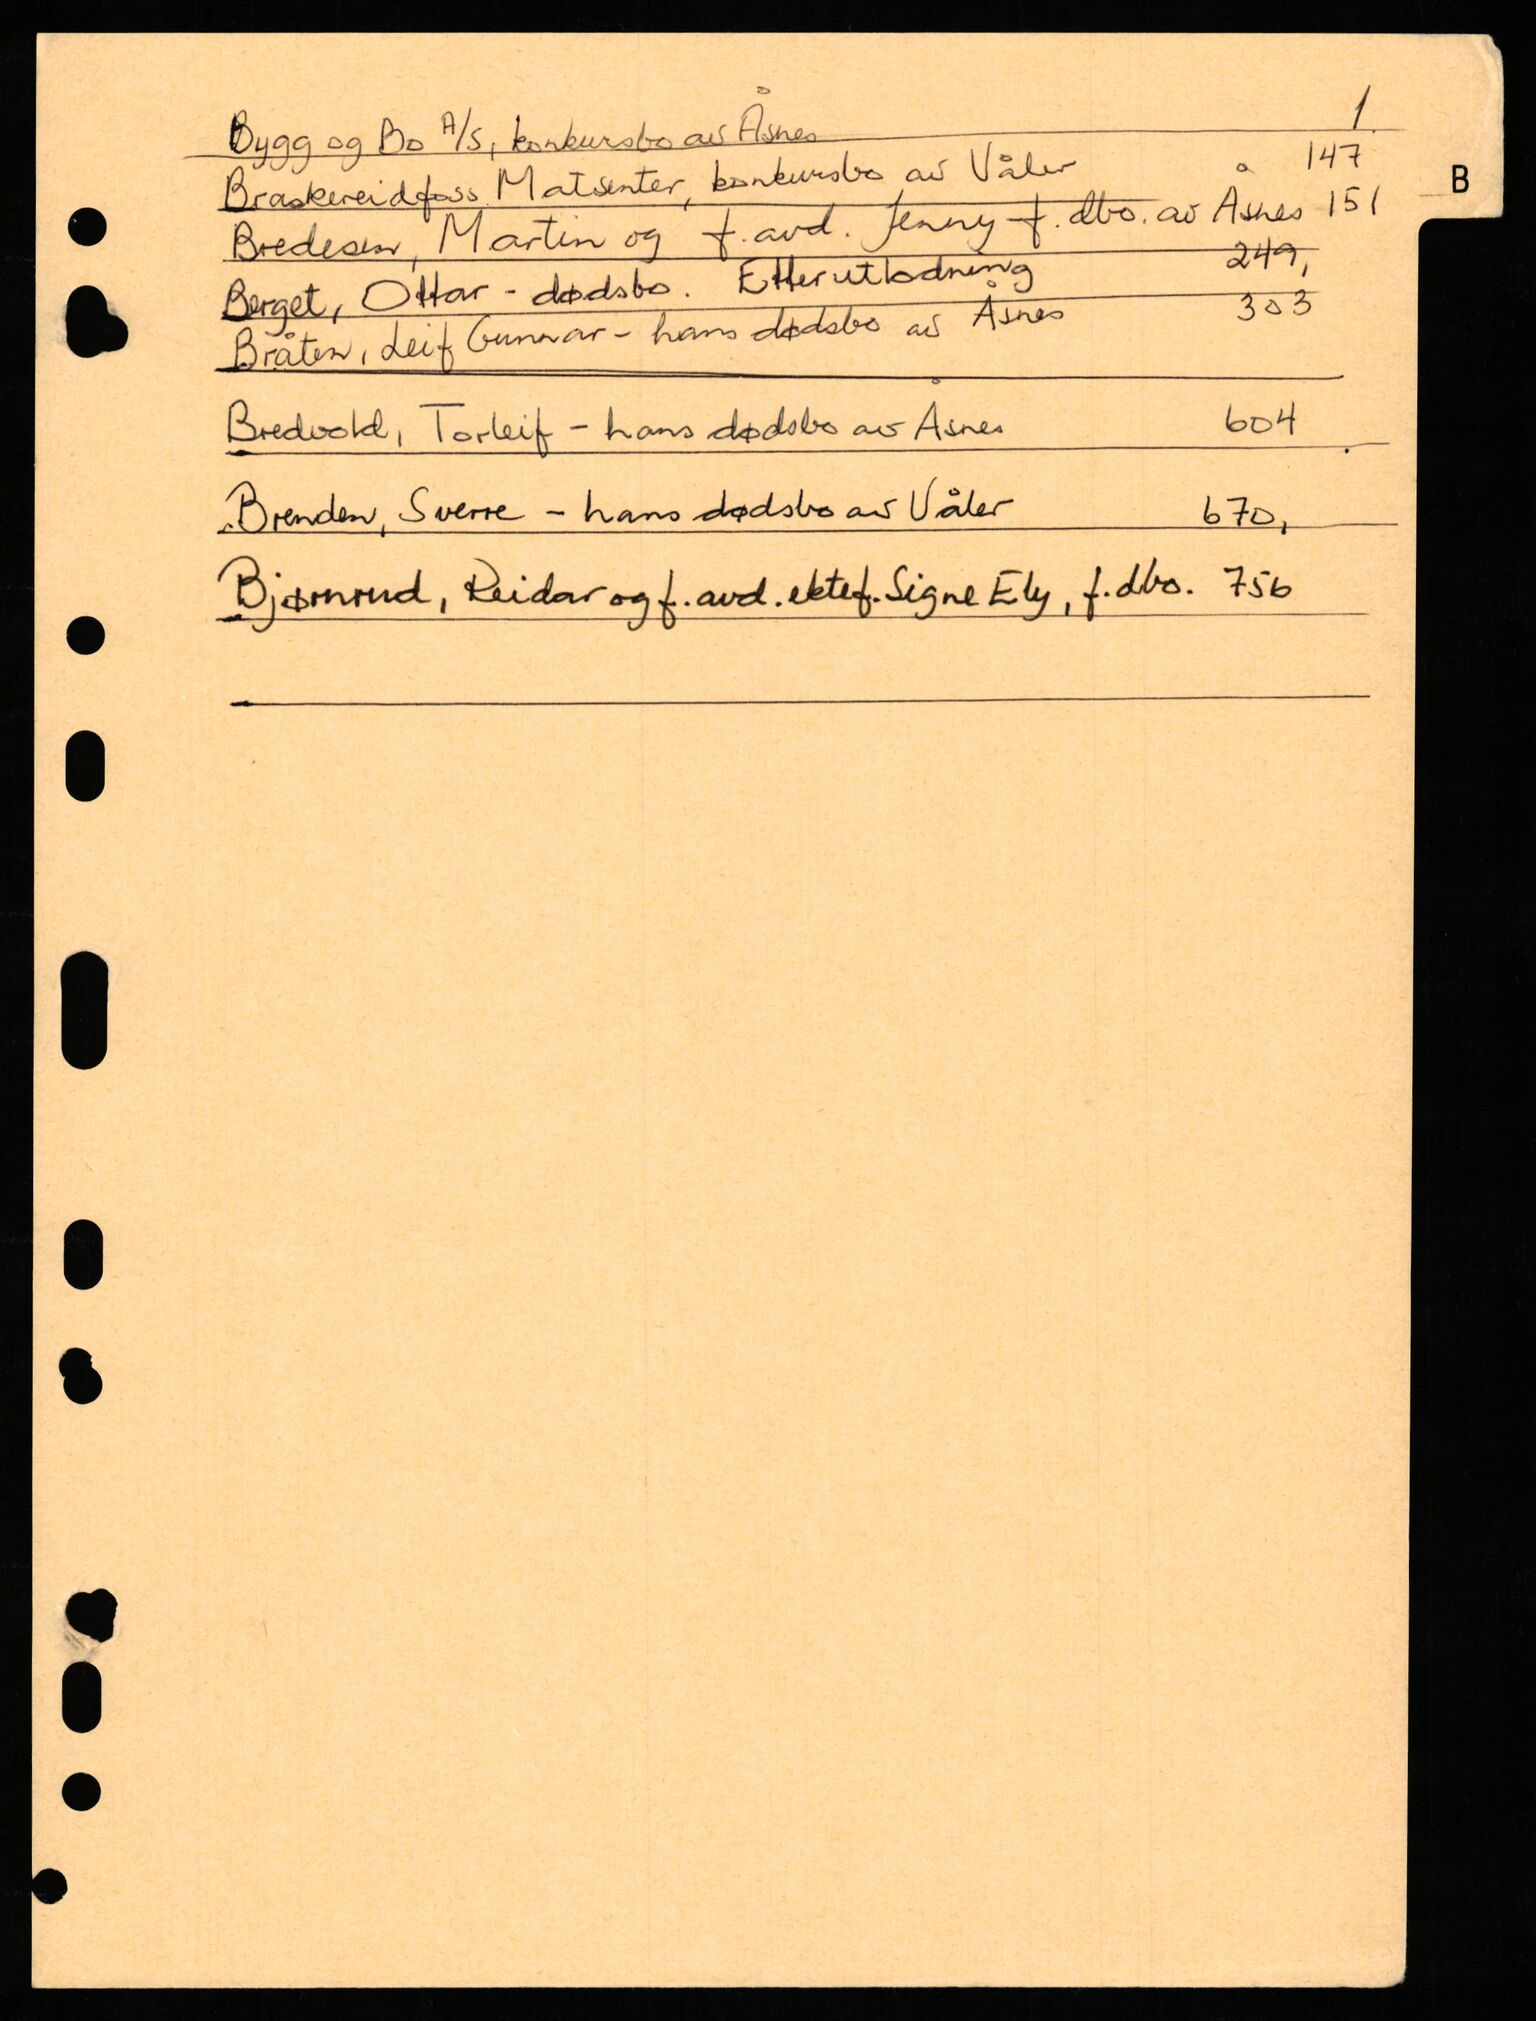 Bygg og Bo A/S, konkursbo av Åsnes 1
Braskereidfoss Matsenter, konkursbo av Våler 147
B
Bredesen, Martin og f. avd. Jenny f. dbo. av Åsnes 151
Berget, Ottar - dødsbo. Etterutlodning 249,
Bråten, Leif Gunnar - hans dødsbo av Åsnes 303
Bredvold, Torleif - hans dødsbo av Åsnes 604
Brenden, Sverre - hans dødsbo av Våler 670,
Bjørnrud, Reidar og f. avd. ektef. Signe Ely, f. dbo. 756